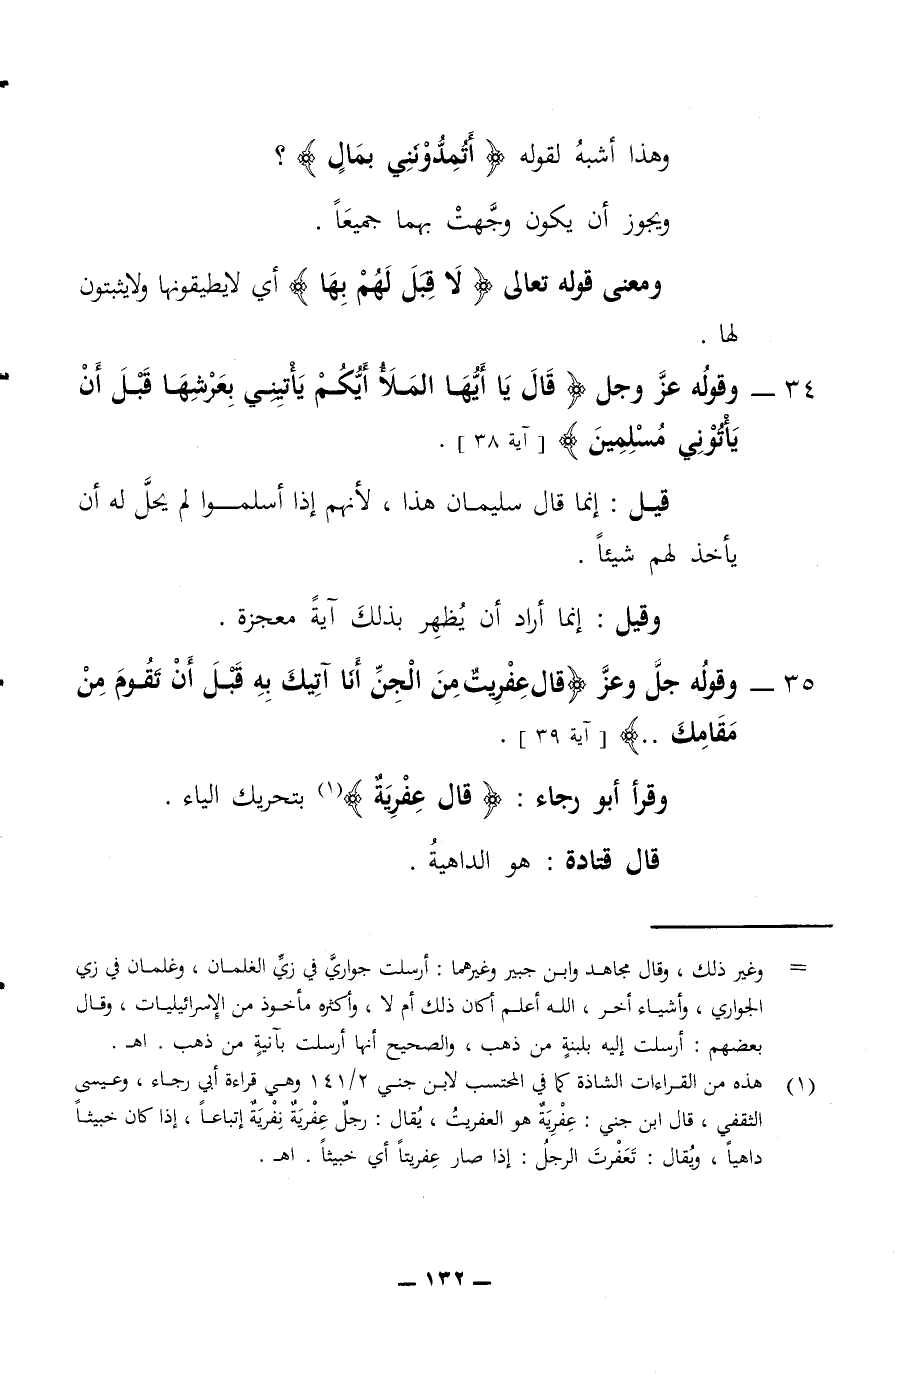 وهذا أشبهُ لقوله ﴿ أَتُمِدُّوْنَنِي بمَالٍ ﴾ ؟
ويجوز أن يكون وجَّهتْ بهما جميعَاً .
ومعنى قوله تعالى ﴿ لَا قِبَلَ لَهُمْ بِهَا ﴾ أي لايطيقونها ولايثبتون
لها .
٣٤ ــ وقولُه عزَّ وجل ﴿ قَالَ يَا أَيُّهَا المَلَأُ أَيُّكُمْ يَأْتِيِنِي بِعَرْشِهَا قَبْلَ أَنْ
يَأْتُوْنِي مُسْلِمِينَ ﴾ [ آية ٣٨ ] .
قيل : إنما قال سليمان هذا ، لأنهم إذا أسلموا لم يحلَّ له أن
يأخذ لهم شيئاً .
وقيل : إنما أراد أن يُظهِر بذلكَ آيةً معجزة .
٣٥ ــ وقولُه جلَّ وعزَّ ﴿قال عِفْرِيتٌ مِنَ الْجِنِّ أَنَا آتِيكَ بِهِ قَبْلَ أَنْ تَقُومَ مِنْ
مَقَامِكَ ..﴾ [ آية ٣٩ ] .
وقرأ أبو رجاء : ﴿ قال عِفْرِيَةٌ ﴾(١) بتحريك الياء .
قال قتادة : هو الداهيةُ .
= وغير ذلك ، وقال مجاهد وابن جبير وغيرهما : أرسلت جواريَّ في زيِّ الغلمان ، وغلمان في زي
الجواري ، وأشياء أخر ، الله أعلم أكان ذلك أم لا ، وأكثره مأخوذ من الإسرائيليات ، وقال
بعضهم : أرسلت إليه بلبنةٍ من ذهب ، والصحيح أنها أرسلت بآنيةٍ من ذهب . اهـ .
(١) هذه من القراءات الشاذة كما في المحتسب لابن جني ١٤١/٢ وهي قراءة أبي رجاء ، وعيسى
الثقفي ، قال ابن جني : عِفْرِيَةٌ هو العفريتُ ، يُقال : رجلٌ عِفْرِيَةٌ نِفْرِيَةٌ إتباعاً ، إذا كان خبيثاً
داهياً ، ويُقال : تَعَفْرتَ الرجلُ : إذا صار عِفريتاً أي خبيثاً . اهـ .
ــ ١٣٢ ــ